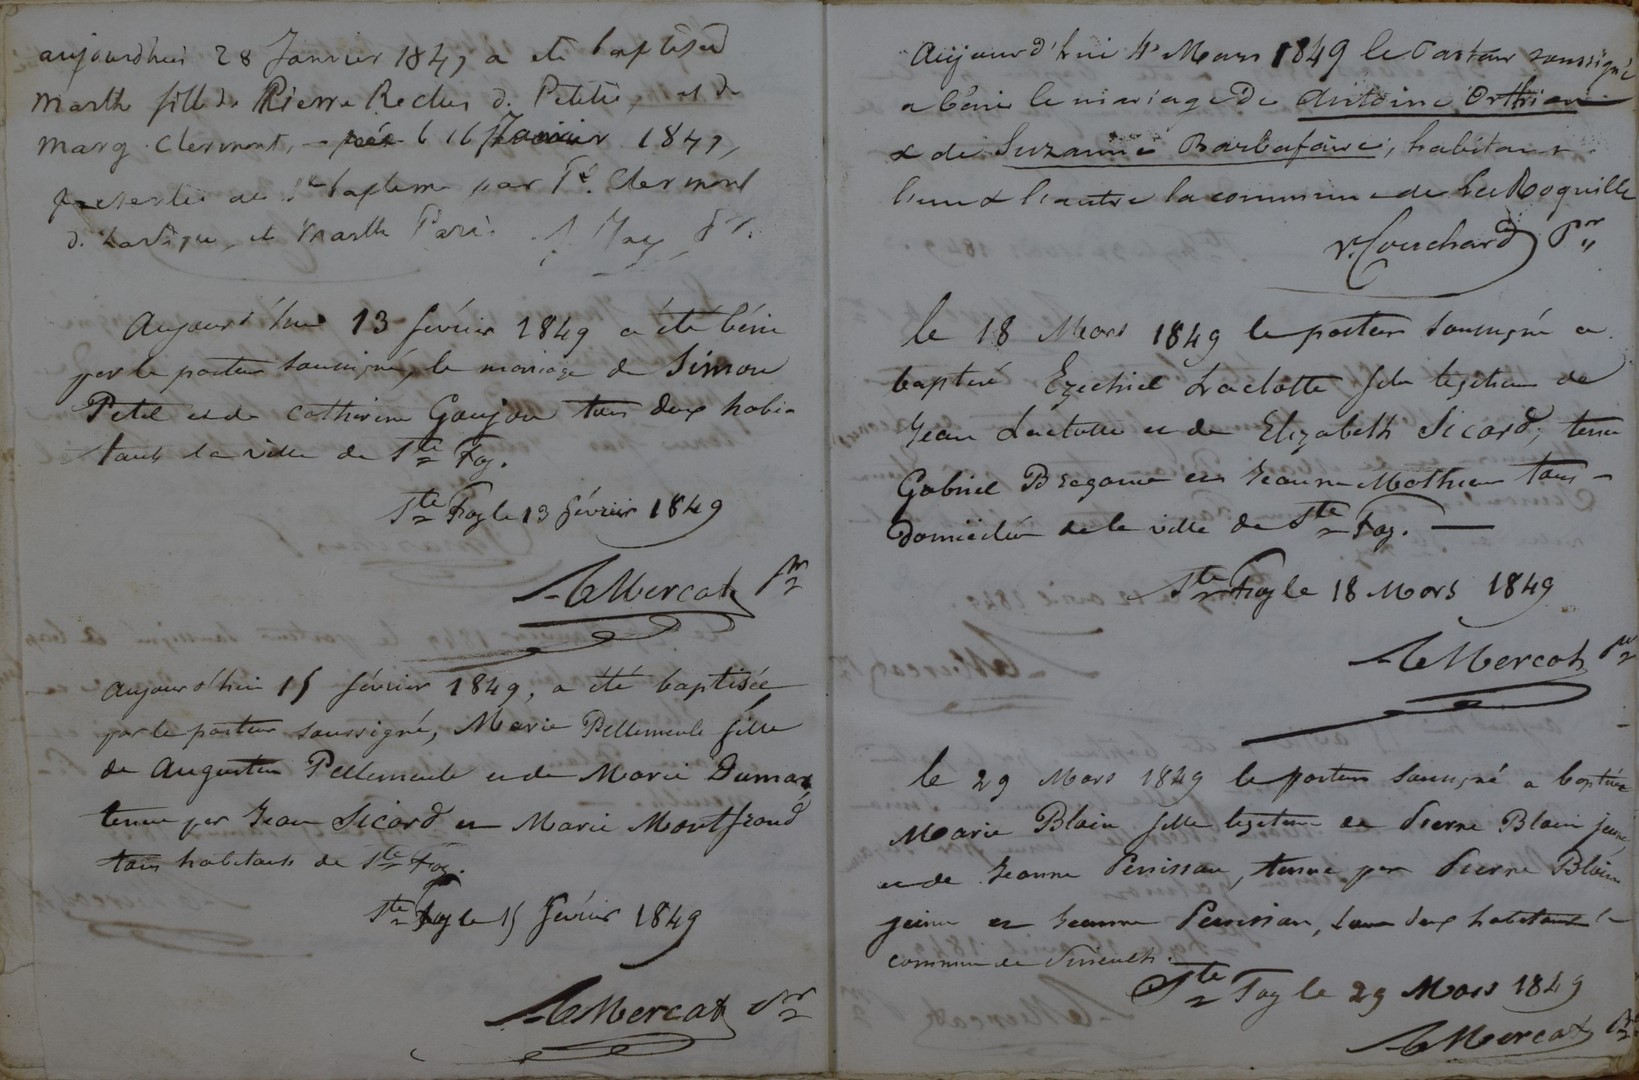 aujourdhui 28 Janvier 1849 a été baptisée
Marthe fille de Pierre Reclus d. Petitie, et de
Marg. Clermont, née le 16 Janvier 1849,
présentée au St baptême par Clermont
et Marthe
Aujourd'hui 13 février 1849 a été béni
par le pasteur soussigné, le mariage de Simon
Petel et de Catherine Goujou tous deux habi-
tants la ville de Ste Foy.
Ste Foy le 13 février 1849
LeMercat pr
Aujourd'hui 15 février 1849, a été baptisée
par le pasteur soussigné, Marie Pellemeule fille
de Augustin Pellemeule et de Marie Dumas,
tenue par Jean Sicard et Marie Montfraud
tous habitants de Ste Foy.
Ste Foy le 15 février 1849
LeMercat Pr
Aujourd'hui 4 Mars 1849 le Pasteur soussigné
a béni le mariage de Antoine
& de Suzanne Barbefaire, habitant
l'un & l'autre la commune de La Roquille
V. Couchard Pr
Le 18 Mars 1849 le pasteur soussigné a
baptisé Ezechiel Laclotte fils légitime de
Jean Laclotte et de Elizabeth Sicard, tenu
Gabriel et Jeanne Mathieu tous
domiciliés de la ville de Ste Foy.
Ste Foy le 18 Mars 1849
LeMercat pr
Le 29 Mars 1849 le pasteur soussigné a baptisé
Marie Blain fille légitime de Pierre Blain jeune
et de Jeanne Perissau, tenue par Pierre Blain
jeune et Jeanne Perissau, tous deux habitants la
commune de
Ste Foy le 29 Mars 1849
LeMercat Pr